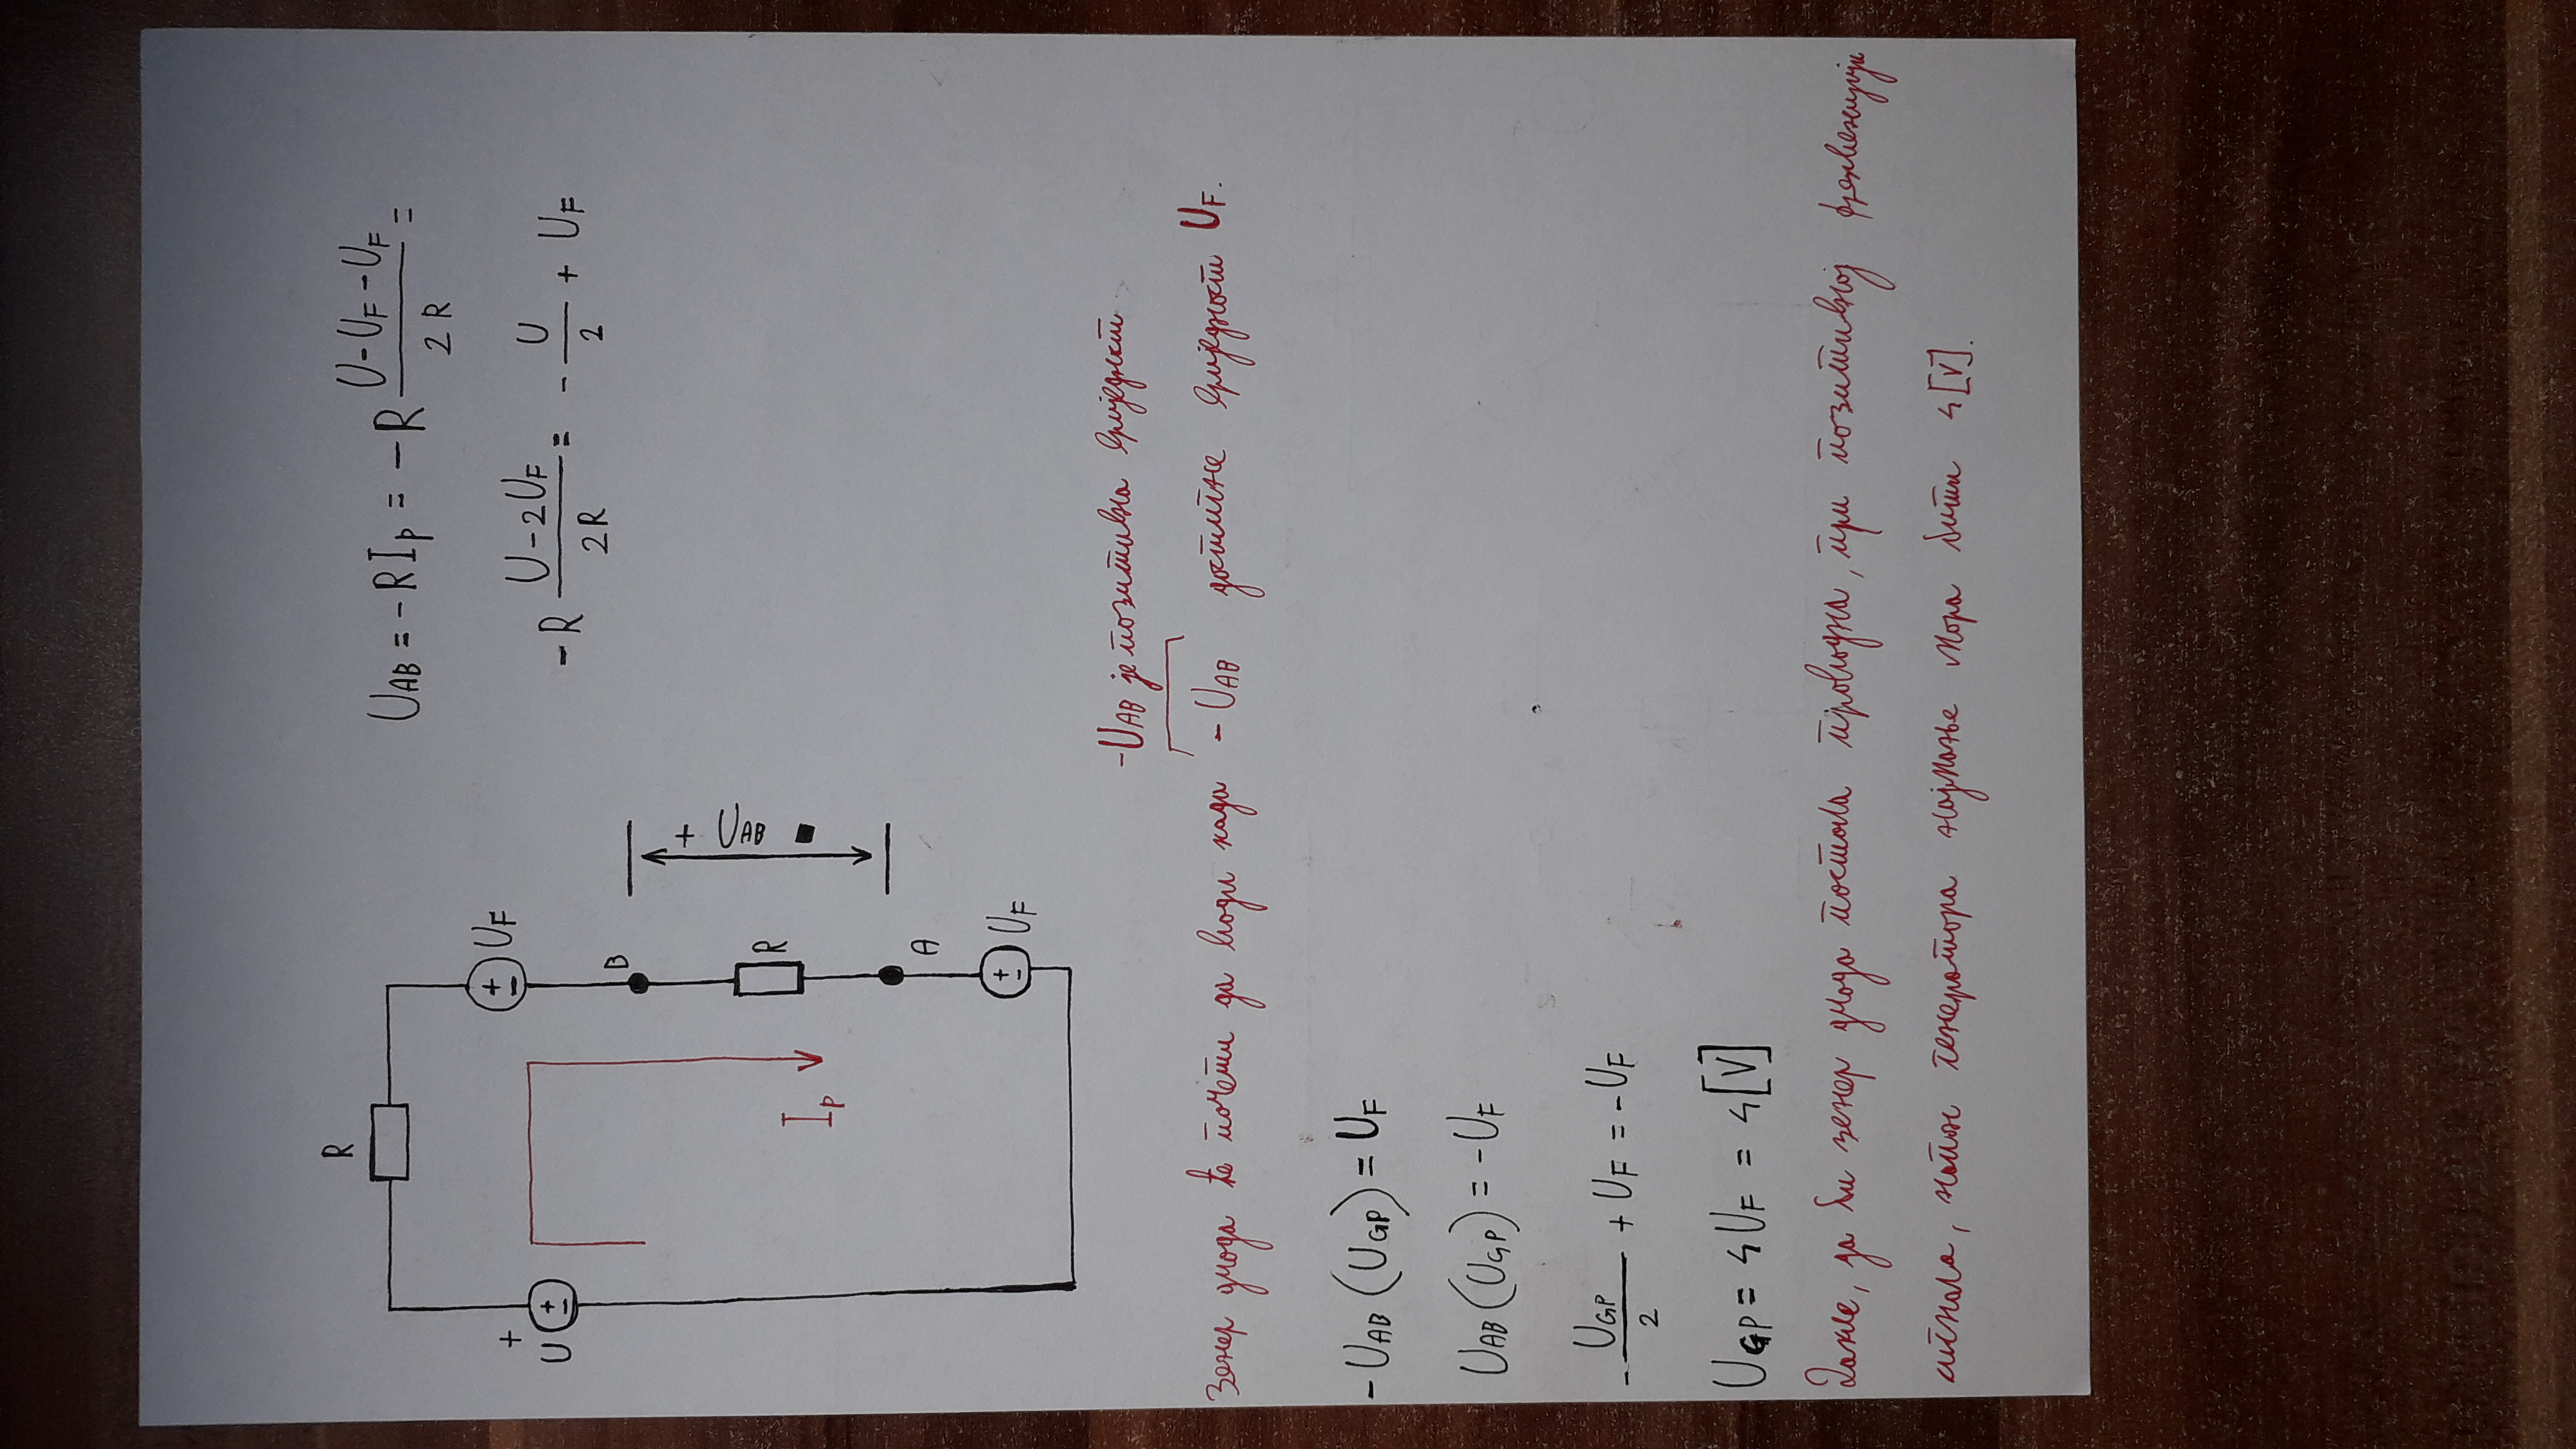 R
+
U
+
-
+
-
U_F
B
R
I_p
+ U_AB
A
+
-
U_F
U_AB = -R I_p = -R (U - U_F - U_F)/(2R) =
-R (U - 2U_F)/(2R) = - U/2 + U_F
-U_AB је позитивна вриједност
Зенер диода ће почети да води када -U_AB достигне вриједност U_F.
-U_AB (U_GP) = U_F
U_AB (U_GP) = -U_F
- U_GP/2 + U_F = -U_F
U_GP = 4U_F = 4[V]
Дакле, да би зенер диода постала проводна, при позитивној фреквенцији
сигнала, напон генератора најмање мора бити 4[V].